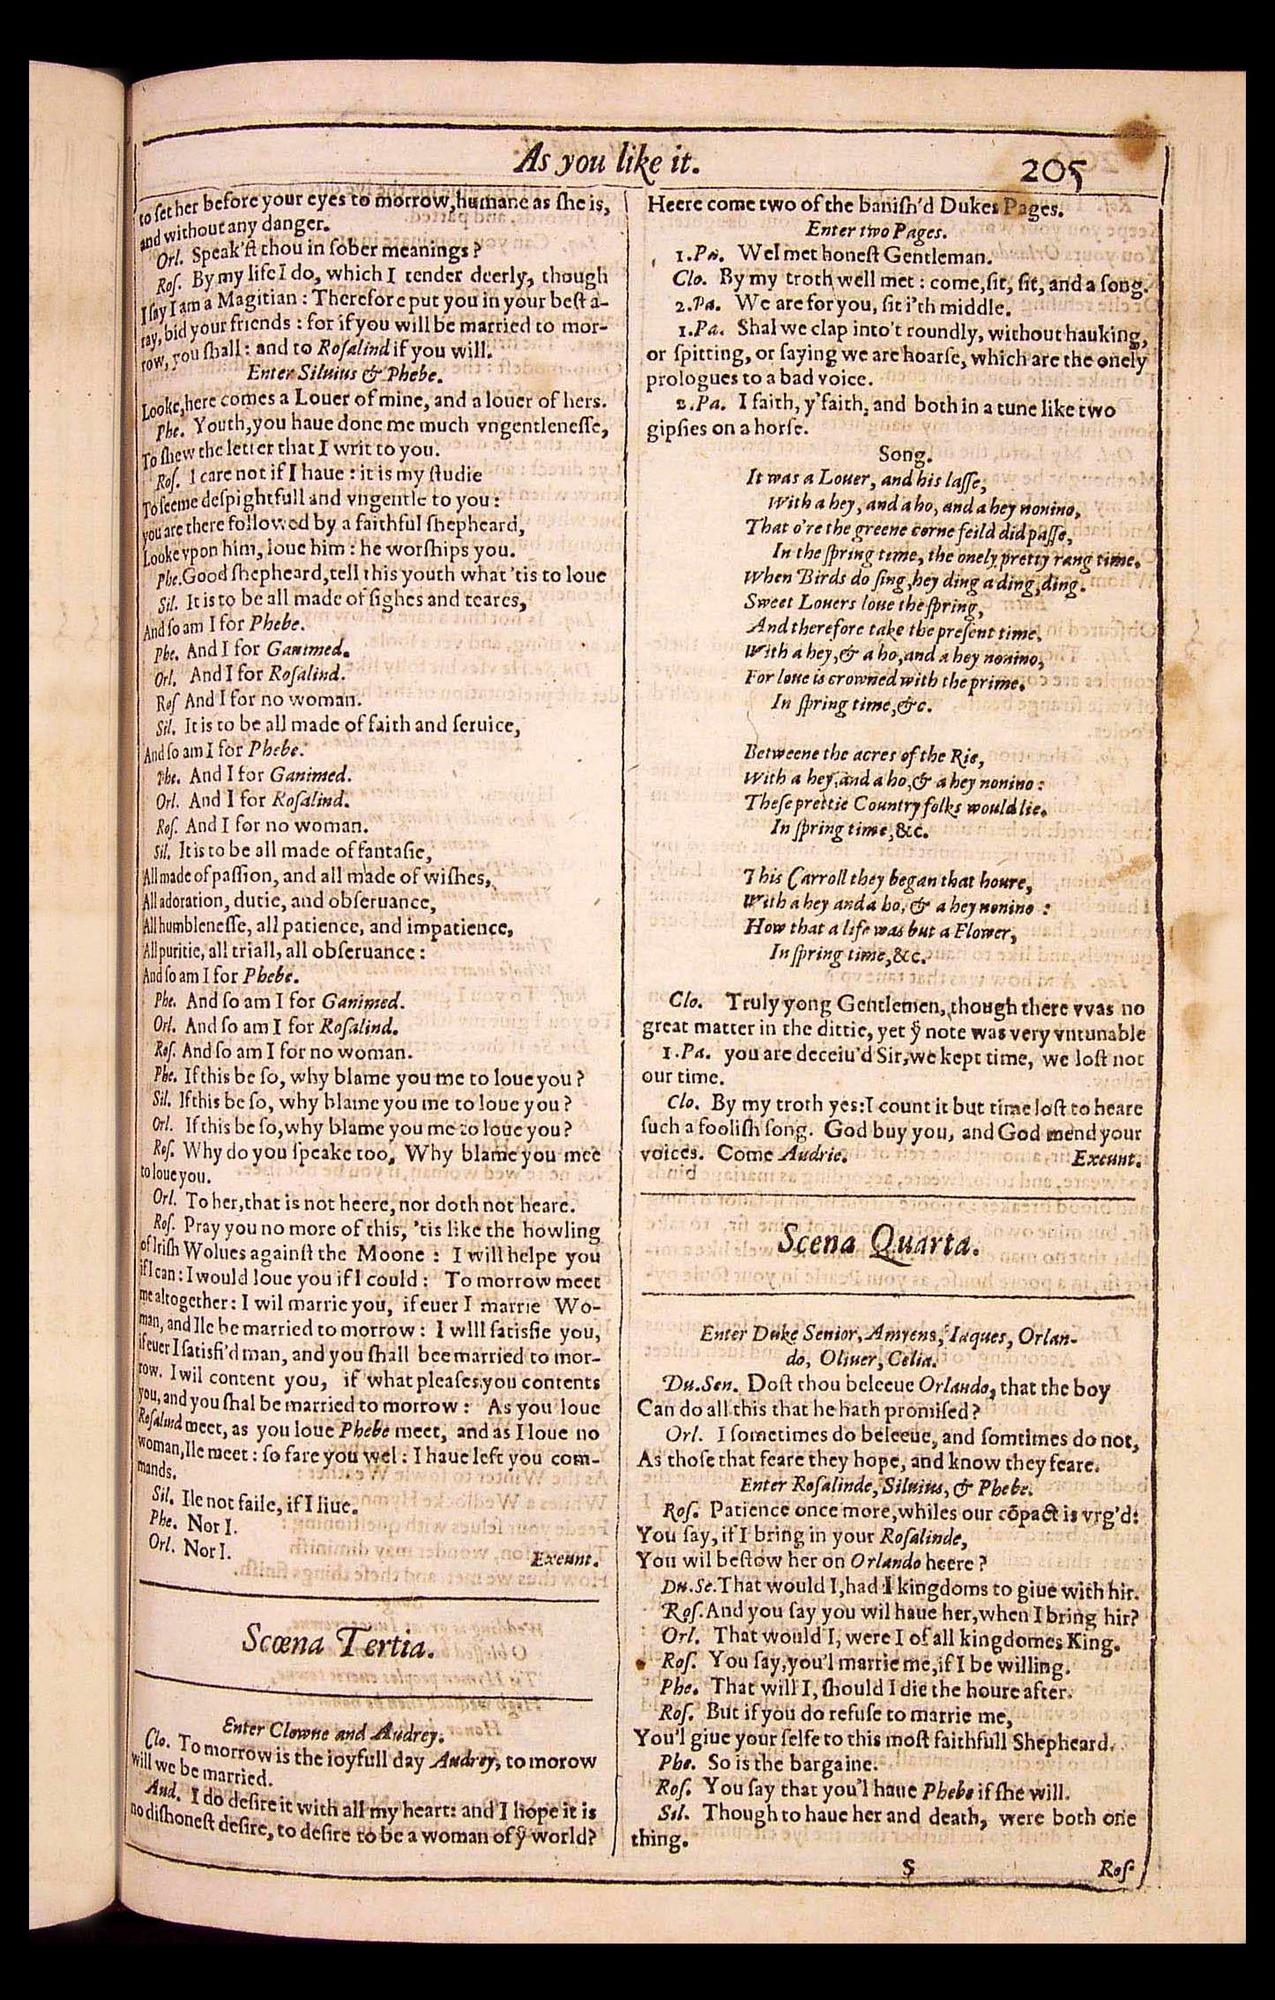 As you like it. 205
to set her before your eyes to morrow, humane as she is,
and without any danger.
Orl. Speak'st thou in sober meanings?
Ros. By my life I do, which I tender deerly, though
I say I am a Magitian: Therefore put you in your best a-
ray, bid your friends: for if you will be married to mor-
row, you shall: and to Rosalind if you will.
Enter Siluius & Phebe.
Looke, here comes a Louer of mine, and a louer of hers.
Phe. Youth, you haue done me much vngentlenesse,
To shew the letter that I writ to you.
Ros. I care not if I haue: it is my studie
To seeme despightfull and vngentle to you:
you are there followed by a faithful shepheard,
Looke vpon him, loue him: he worships you.
Phe. Good shepheard, tell this youth what 'tis to loue
Sil. It is to be all made of sighes and teares,
And so am I for Phebe.
Phe. And I for Ganimed.
Orl. And I for Rosalind.
Ros And I for no woman.
Sil. It is to be all made of faith and seruice,
And so am I for Phebe.
Phe. And I for Ganimed.
Orl. And I for Rosalind.
Ros. And I for no woman.
Sil. It is to be all made of fantasie,
All made of passion, and all made of wishes,
All adoration, dutie, and obseruance,
All humblenesse, all patience, and impatience,
All puritie, all triall, all obseruance:
And so am I for Phebe.
Phe. And so am I for Ganimed.
Orl. And so am I for Rosalind.
Ros. And so am I for no woman.
Phe. If this be so, why blame you me to loue you?
Sil. If this be so, why blame you me to loue you?
Orl. If this be so, why blame you me to loue you?
Ros. Why do you speake too, Why blame you mee
to loue you.
Orl. To her, that is not heere, nor doth not heare.
Ros. Pray you no more of this, 'tis like the howling
of Irish Wolues against the Moone: I will helpe you
if I can: I would loue you if I could: To morrow meet
me altogether: I wil marrie you, if euer I marrie Wo-
man, and Ile be married to morrow: I will satisfie you,
if euer I satisfi'd man, and you shall bee married to mor-
row. I wil content you, if what pleases you contents
you, and you shal be married to morrow: As you loue
Rosalind meet, as you loue Phebe meet, and as I loue no
woman, Ile meet: so fare you wel: I haue left you com-
mands.
Sil. Ile not faile, if I liue.
Phe. Nor I.
Orl. Nor I. Exeunt.
Scœna Tertia.
Enter Clowne and Audrey.
Clo. To morrow is the ioyfull day Audrey, to morow
will we be married.
Aud. I do desire it with all my heart: and I hope it is
no dishonest desire, to desire to be a woman of yͤ world?
Heere come two of the banish'd Dukes Pages.
Enter two Pages.
1.Pa. Wel met honest Gentleman.
Clo. By my troth well met: come, sit, sit, and a song.
2.Pa. We are for you, sit i'th middle.
1.Pa. Shal we clap into't roundly, without hauking,
or spitting, or saying we are hoarse, which are the onely
prologues to a bad voice.
2.Pa. I faith, y'faith, and both in a tune like two
gipsies on a horse.
Song.
It was a Louer, and his lasse,
With a hey, and a ho, and a hey nonino,
That o're the greene corne feild did passe,
In the spring time, the onely pretty rang time.
When Birds do sing, hey ding a ding, ding.
Sweet Louers loue the spring,
And therefore take the present time.
With a hey, & a ho, and a hey nonino,
For loue is crowned with the prime.
In spring time, &c.
Betweene the acres of the Rie,
With a hey, and a ho, & a hey nonino:
These prettie Country folks would lie.
In spring time, &c.
This Carroll they began that houre,
With a hey and a ho, & a hey nonino:
How that a life was but a Flower,
In spring time, &c.
Clo. Truly yong Gentlemen, though there vvas no
great matter in the dittie, yet yͤ note was very vntunable
1.Pa. you are deceiu'd Sir, we kept time, we lost not
our time.
Clo. By my troth yes: I count it but time lost to heare
such a foolish song. God buy you, and God mend your
voices. Come Audrie. Exeunt.
Scena Quarta.
Enter Duke Senior, Amyens, Iaques, Orlan-
do, Oliuer, Celia.
Du.Sen. Dost thou beleeue Orlando, that the boy
Can do all this that he hath promised?
Orl. I sometimes do beleeue, and somtimes do not,
As those that feare they hope, and know they feare.
Enter Rosalinde, Siluius, & Phebe.
Ros. Patience once more, whiles our cōpact is vrg'd:
You say, if I bring in your Rosalinde,
You wil bestow her on Orlando heere?
Du.Se. That would I, had I kingdoms to giue with hir.
Ros. And you say you wil haue her, when I bring hir?
Orl. That would I, were I of all kingdomes King.
Ros. You say, you'l marrie me, if I be willing.
Phe. That will I, should I die the houre after.
Ros. But if you do refuse to marrie me,
You'l giue your selfe to this most faithfull Shepheard.
Phe. So is the bargaine.
Ros. You say that you'l haue Phebe if she will.
Sil. Though to haue her and death, were both one
thing.
S Ros.